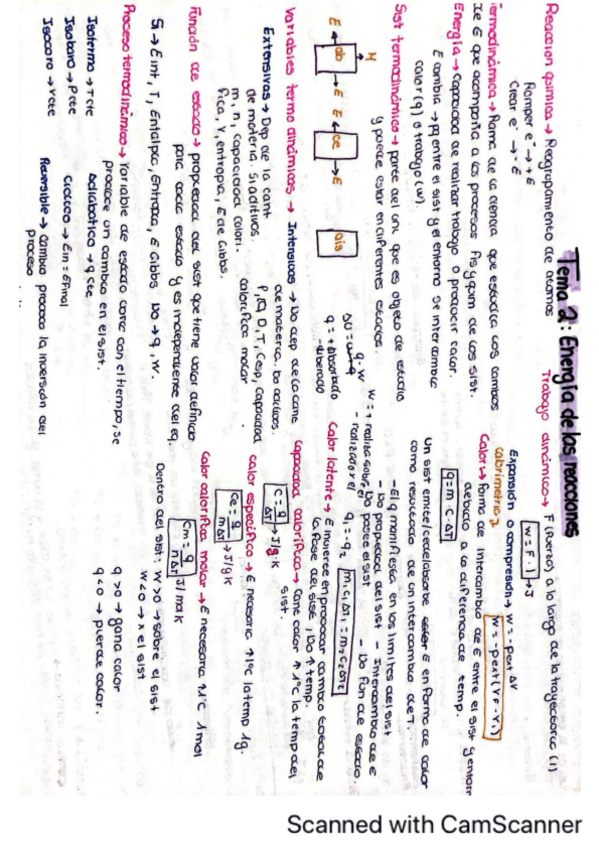 Tema 2: Energía de las reacciones
Reaccion química → Reagrupamiento de atomos
Romper e⁻ → + E
Crear e⁻ → - E
Termodinámica → Rama de la ciencia que estudia los cambios
de E que acompaña a los procesos fis y quim de los sist.
Energía → Capacidad de realizar trabajo o producir calor.
E cambia → pq entre el sist y el entorno se intercambia
calor (q) o trabajo (w).
Sist termodinámico → parte del uni que es objeto de estudio
y puede estar en diferentes estados.
M
E ab E
E ce E
ais
Variables termodinámicas → Intensivas → No dep de la cant
de materia. No aditivas.
P, D, T, Cesp, capacidad
calorífica molar
Extensivas → Dep de la cant
de materia. Si aditivas.
m, n, capacidad calorí-
fica, V, entropia, E de Gibbs.
Función de estado → propiedad del sist que tiene valor definido
para cada estado y es independiente del
Si → E int, T, Entalpia, Entropia, E Gibbs No → q, w.
Proceso termodinámico → Variable de estado como con el tiempo, se
produce un cambio en el sist.
Isotermo → T cte Adiabatico → q cte
Isobaro → P cte Ciclico → Ein = Efinal
Isocoro → V cte Reversible → Cambio provoca la inversión del
proceso
Trabajo dinámico → F (fuerza) a lo largo de la trayectoria (l)
W = F · l → J
Expansión o compresión → W = -Pext ΔV
W = -Pext (VF - Vi)
Calorimetria
Calor → Forma de intercambio de E entre el sist y entorn
debido a la diferencia de temp.
q = m · c · ΔT
Un sist emite/cede/absorbe E en forma de calor
como resultado de un intercambio de T.
- El q manifiesta en los limites del sist
- No propiedad del sist - Intercambio de E
- No posee el sist - No fun de estado.
W = + realiza sobre el
- realizado x el
q · w
q = + absorbido
- liberado
q₁ = -q₂ m₁c₁ΔT₁ = m₂c₂ΔT₂
Calor latente → E invierte en provocar cambio total de
la fase del sist, No ↑ temp.
Capacidad calorífica → Cant calor ↑ 1°C la temp del
sist.
C = q/ΔT → J/g·K
Calor específico → E necesaria ↑ 1°C la temp 1g.
Ce = q/mΔT → J/g·K
Calor calorífica molar → E necesaria ↑ 1°C 1 mol
Cm = q/nΔT J/mol·K
Dentro del sist: w > 0 → sobre el sist
w < 0 → x el sist
q > 0 → gana calor
q < 0 → pierde calor.
Scanned with CamScanner